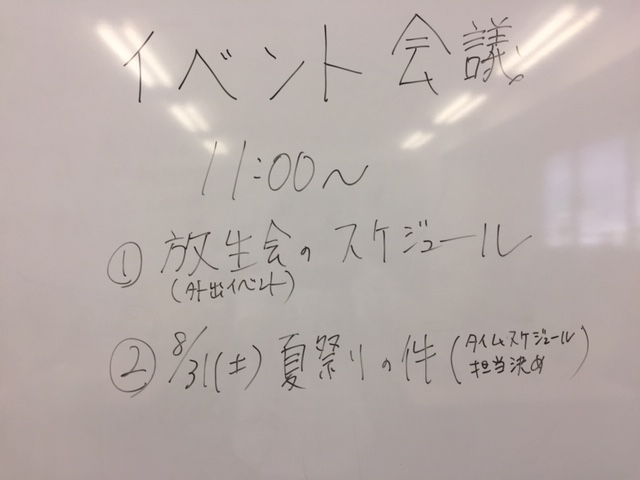 イベント会議
11:00〜
① 放生会のスケジュール
(外出イベント)
② 8/31(土) 夏祭りの件 (タイムスケジュール
担当決め)